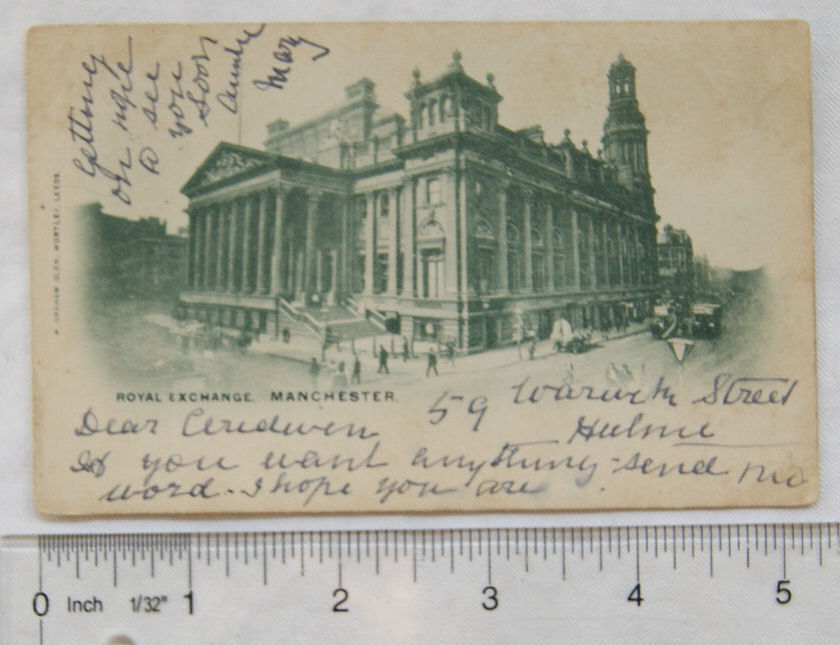 ROYAL EXCHANGE. MANCHESTER.
59 Warwick Street
Hulme
Dear Ceridwen
If you want anything send me
word. I hope you are
getting
on hope
to see
you
soon
Auntie
May
GRAHAM GLEN, WORTLEY, LEEDS.
0 Inch 1/32" 1 2 3 4 5